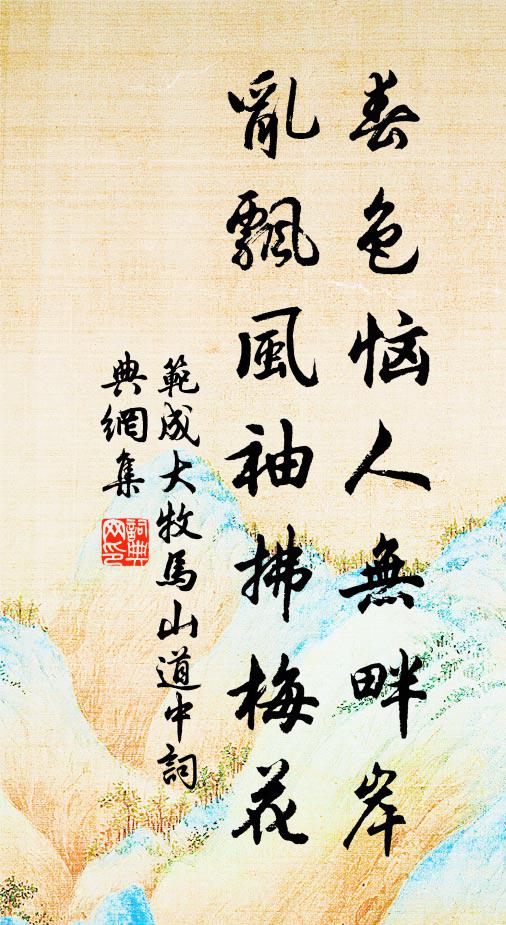 春色恼人無畔岸
亂飄風袖拂梅花
範成大牧馬山道中詞
典網集
詞典
网印